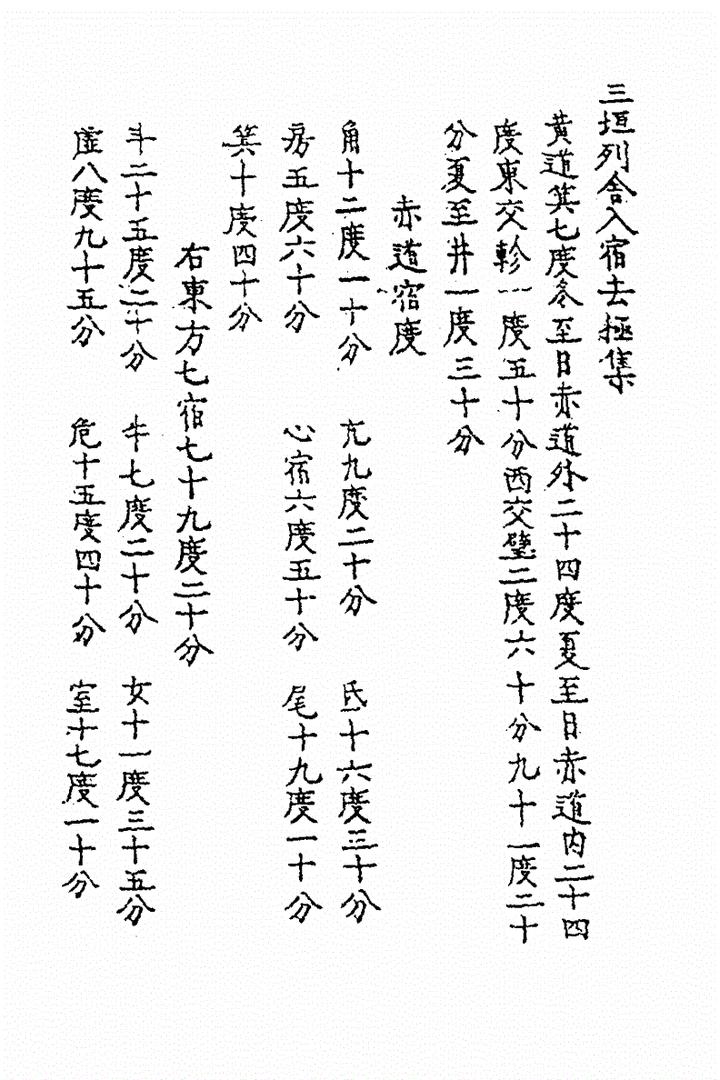 三垣列舍入宿去極集
黃道箕七度冬至日赤道外二十四度夏至日赤道内二十四
度東交軫一度五十分西交壁二度六十分九十一度二十
分夏至井一度三十分
赤道宿度
角十二度一十分 亢九度二十分 氐十六度三十分
房五度六十分 心宿六度五十分 尾十九度一十分
箕十度四十分
右東方七宿七十九度二十分
斗二十五度二十分 牛七度二十分 女十一度三十五分
虛八度九十五分 危十五度四十分 室十七度一十分